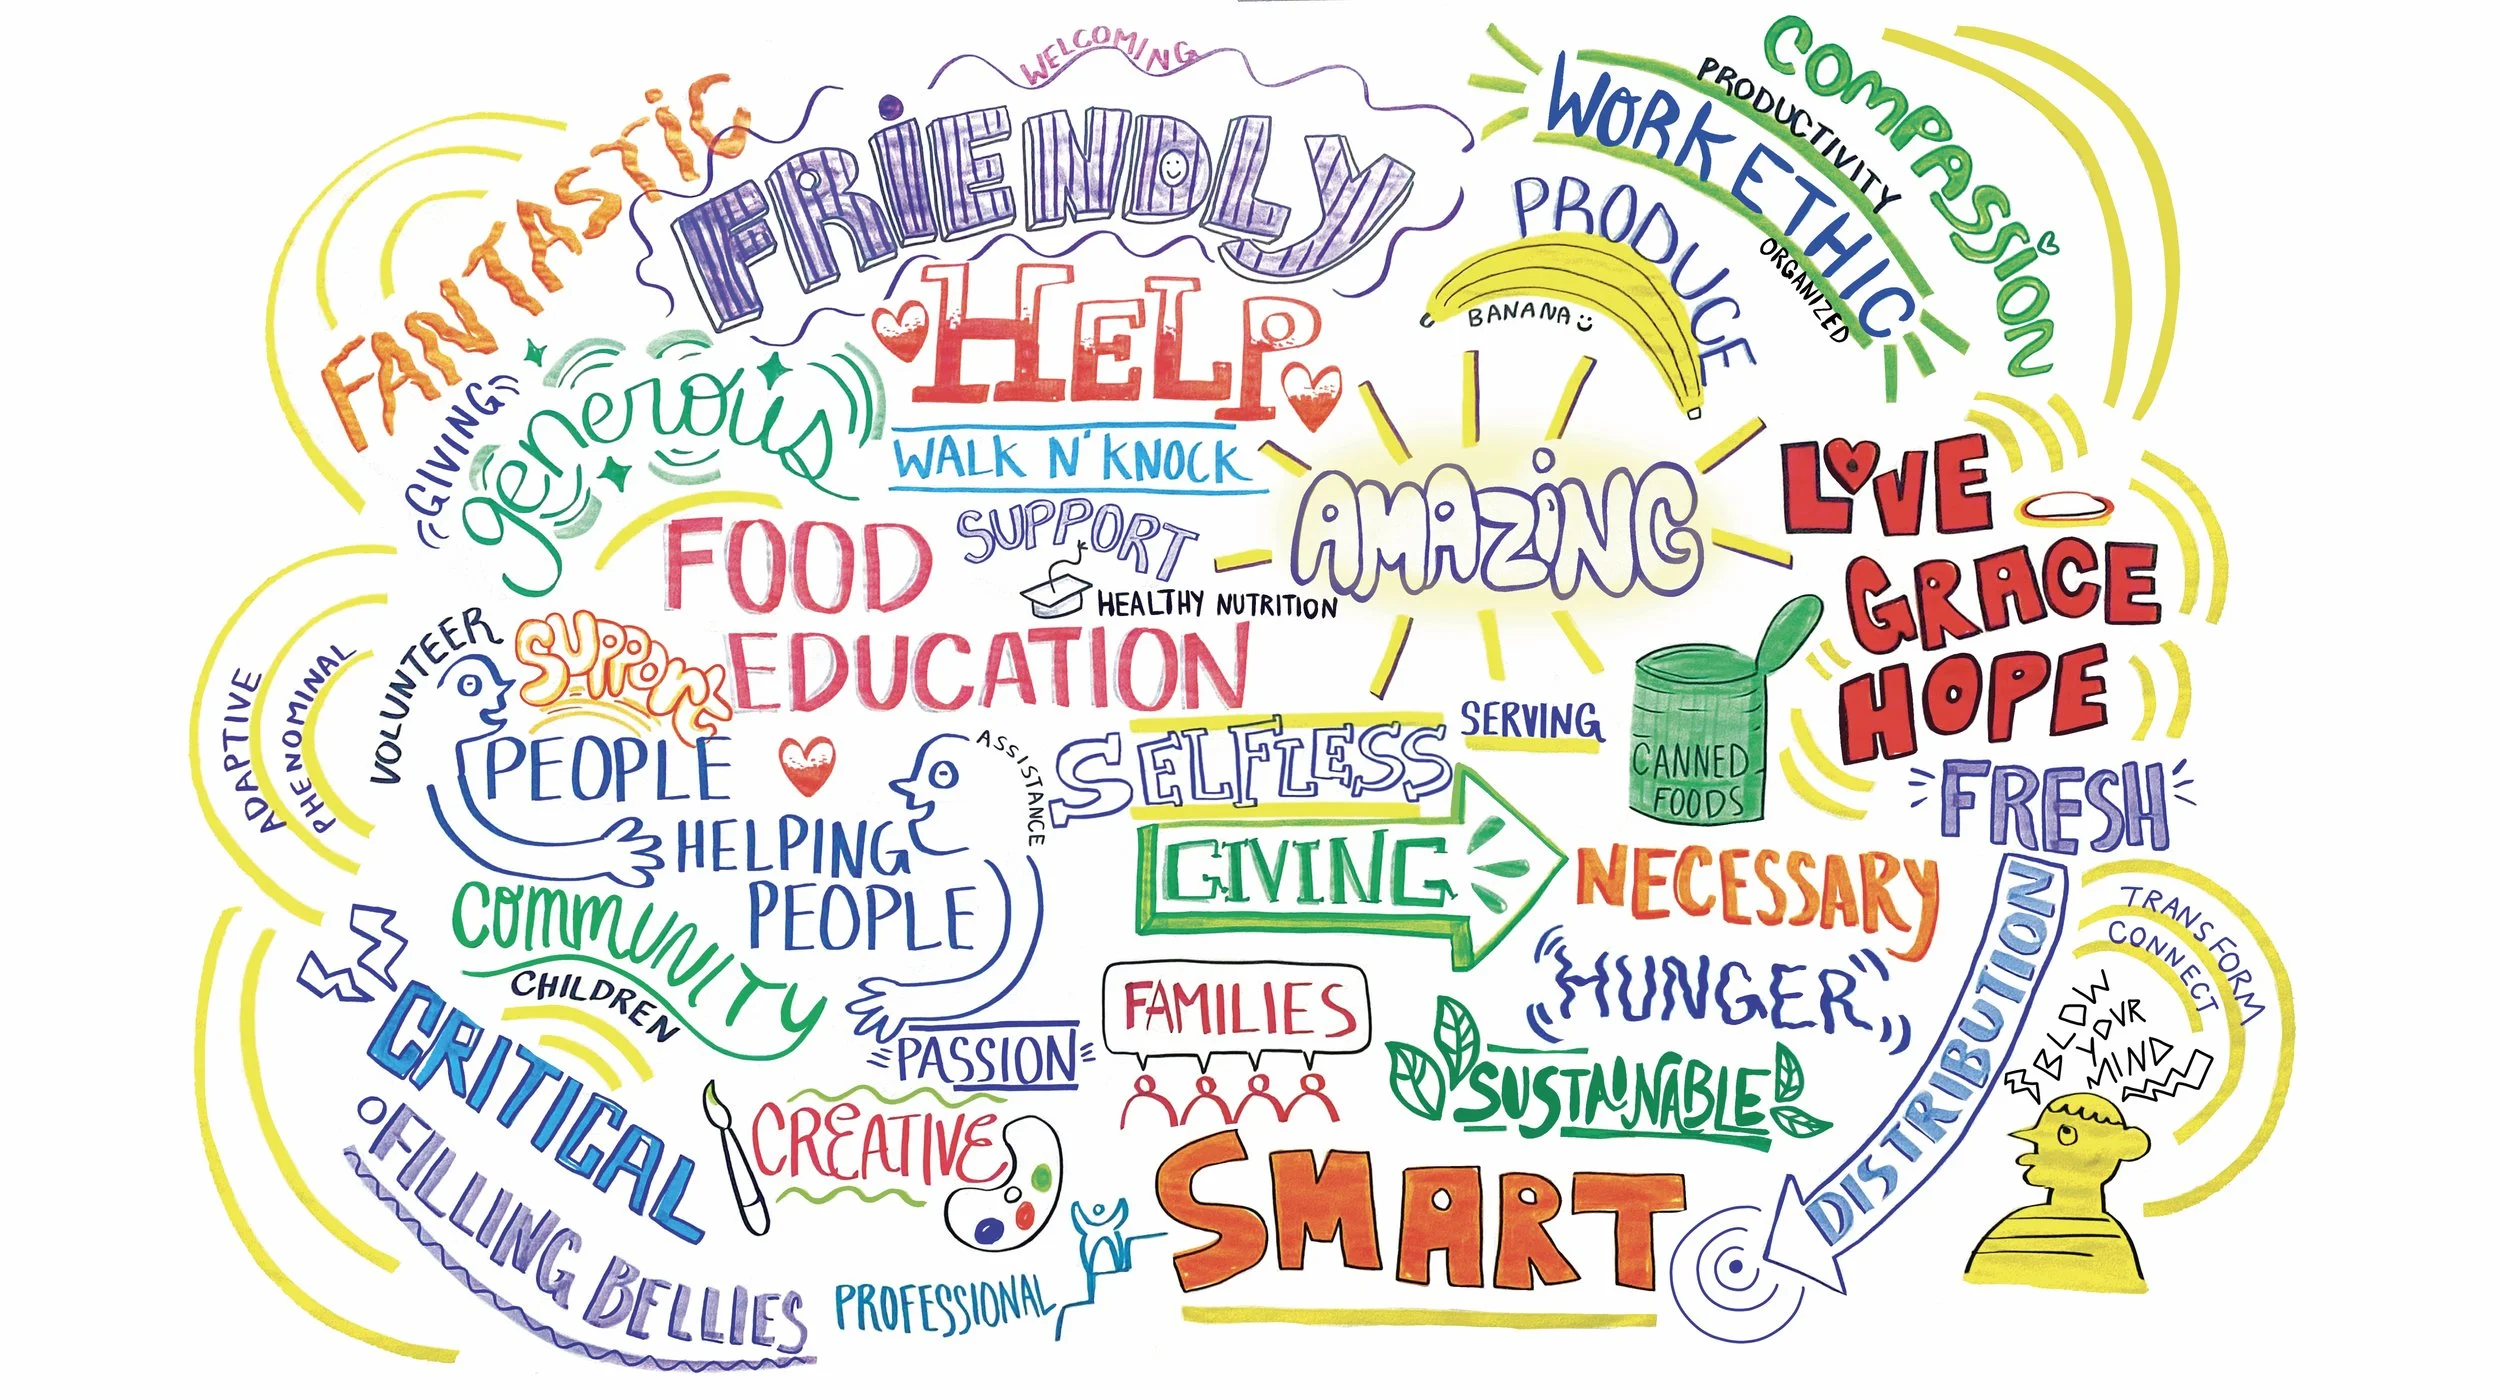 WELCOMING
FANTASTIC
FRiENDLY
HELP
GIVING
generous
WALK N' KNOCK
COMPASSION
PRODUCTIVITY
WORK ETHIC
ORGANIZED
PRODUCE
BANANA
AMAZiNG
LOVE
GRACE
HOPE
FOOD
SUPPORT
HEALTHY NUTRITION
EDUCATION
ADAPTIVE
PHENOMINAL
VOLUNTEER
SUPPORT
PEOPLE
HELPING
PEOPLE
ASSISTANCE
SELFLESS
SERVING
GIVING
CANNED
FOODS
FRESH
NECESSARY
HUNGER
DISTRIBUTION
TRANSFORM
CONNECT
BLOW
YOUR
MIND
COMMUNITY
CHILDREN
PASSION
FAMILIES
SUSTAINABLE
CRITICAL
FILLING BELLIES
CREATIVE
PROFESSIONAL
SMART